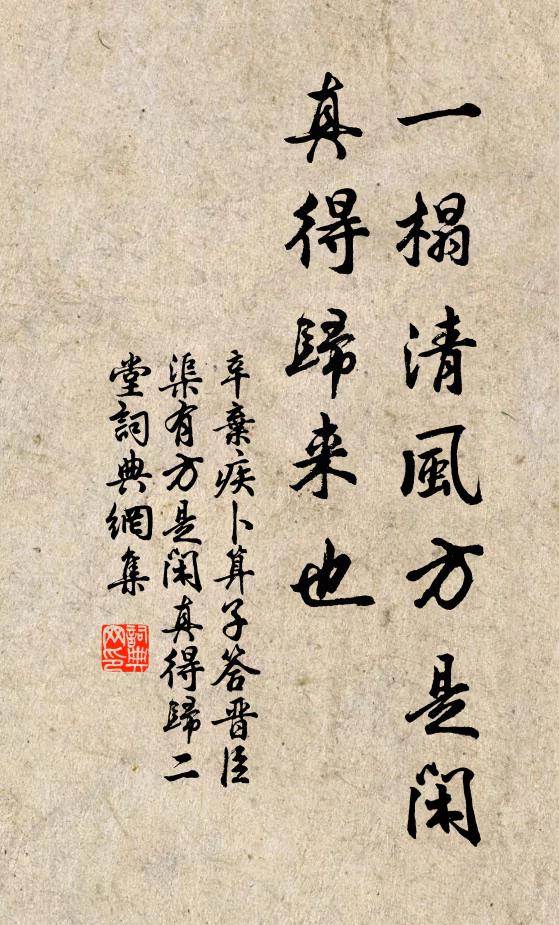 一榻清風方是閑
真得歸来也
辛棄疾卜算子答晋臣
渠有方是閑真得歸二
堂詞典網集
詞典
网印